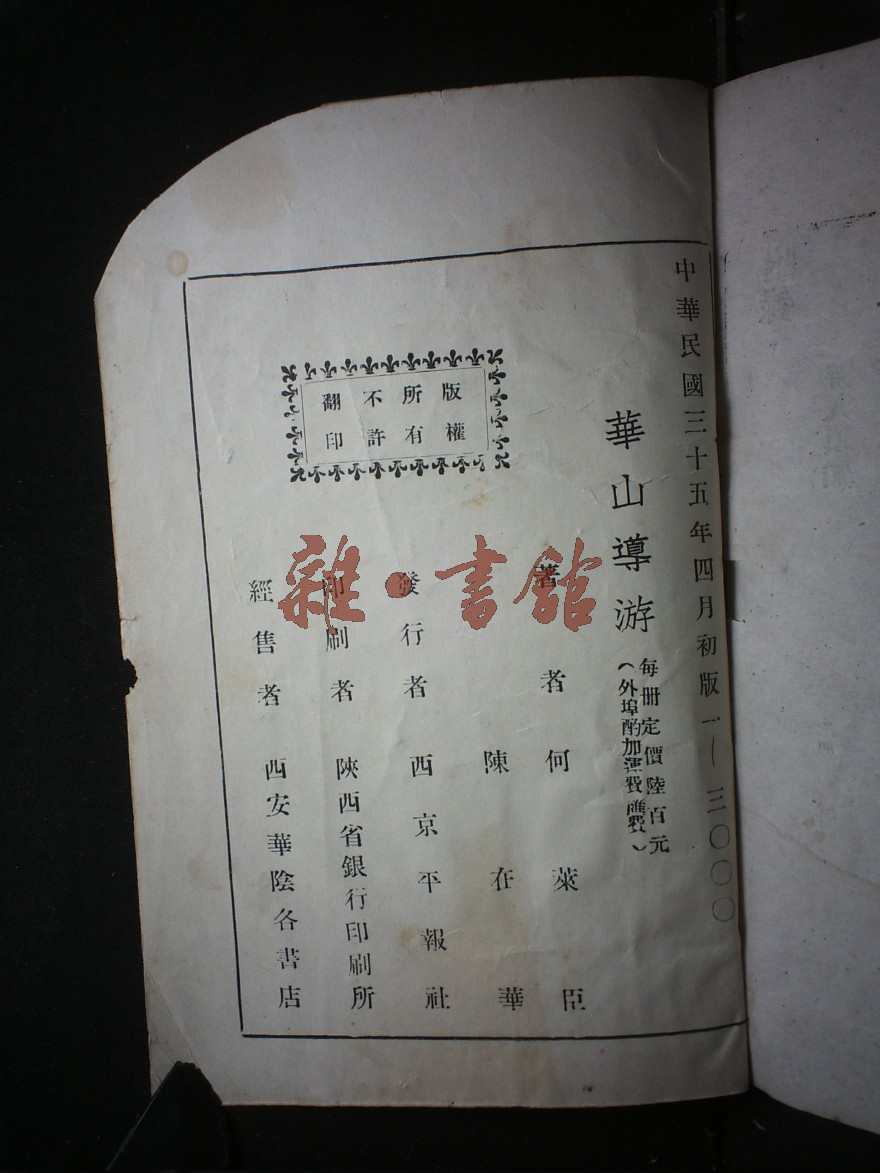 中華民國三十五年四月初版一—三〇〇〇
華山導游
每册定價陸百元
（外埠酌加運費滙費）
著者何萊臣
陳在華
發行者西京平報社
印刷者陝西省銀行印刷所
經售者西安華陰各書店
版權
所有
不許
翻印
雜·書館